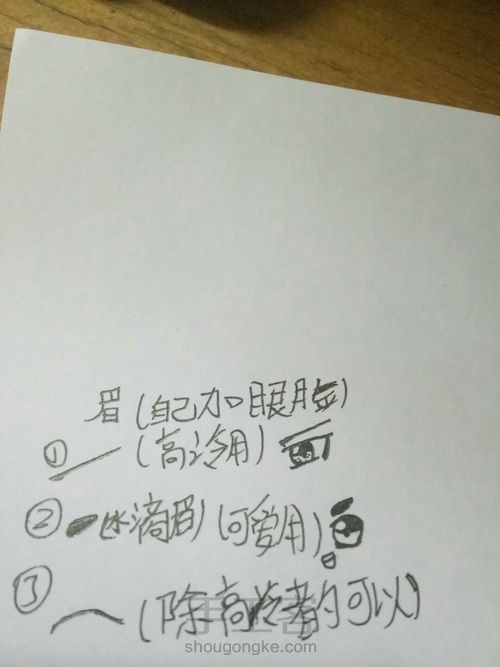 眉(自己加眼脸)
① (高冷用)
② (水滴眉)(可爱用)
③ (除高冷者的可以)
手工客
shougongke.com